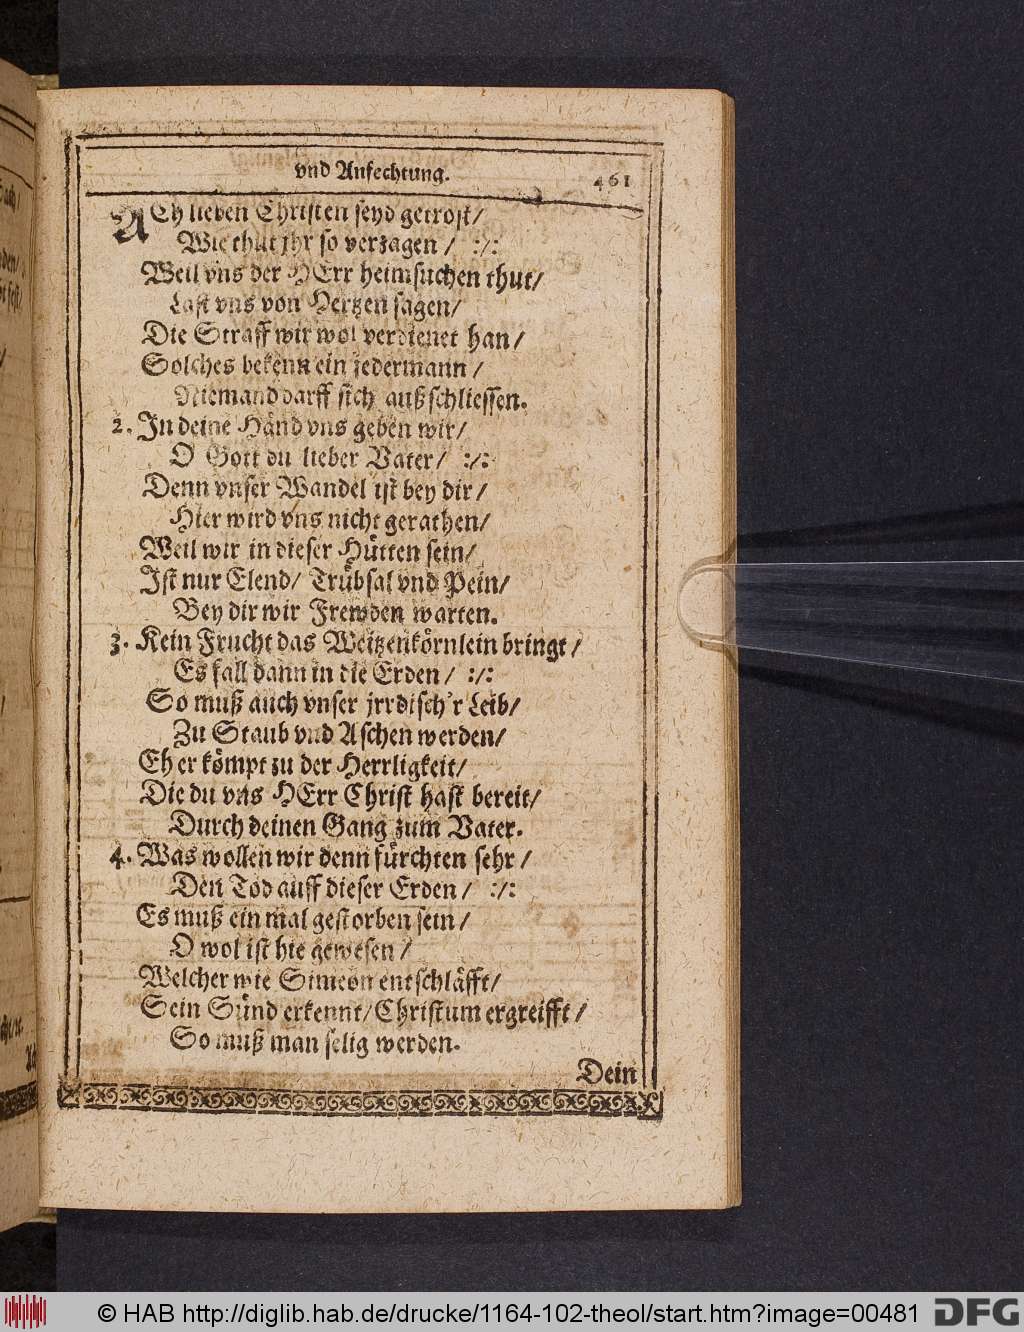 vnd Anfechtung. 461
ACh lieben Christen seyd getrost /
Wie thut jhr so verzagen / :/:
Weil vns der HErr heimsuchen thut /
Last vns von Hertzen sagen /
Die Straff wir wol verdienet han /
Solches bekenn ein jedermann /
Niemand darff sich außschliessen.
2. In deine Händ vns geben wir /
O Gott du lieber Vater / :/:
Denn vnser Wandel ist bey dir /
Hier wird vns nicht gerathen /
Weil wir in dieser Hütten sein /
Ist nur Elend / Trübsal vnd Pein /
Bey dir wir Frewden warten.
3. Kein Frucht das Weitzenkörnlein bringt /
Es fall dann in die Erden / :/:
So muß auch vnser jrrdisch'r Leib /
Zu Staub vnd Aschen werden /
Eh er kömpt zu der Herrligkeit /
Die du vns HErr Christ hast bereit /
Durch deinen Gang zum Vater.
4. Was wollen wir denn fürchten sehr /
Den Tod auff dieser Erden / :/:
Es muß ein mal gestorben sein /
O wol ist hie gewesen /
Welcher wie Simeon entschläfft /
Sein Sünd erkennt / Christum ergreifft /
So muß man selig werden.
Dein
© HAB http://diglib.hab.de/drucke/1164-102-theol/start.htm?image=00481 DFG